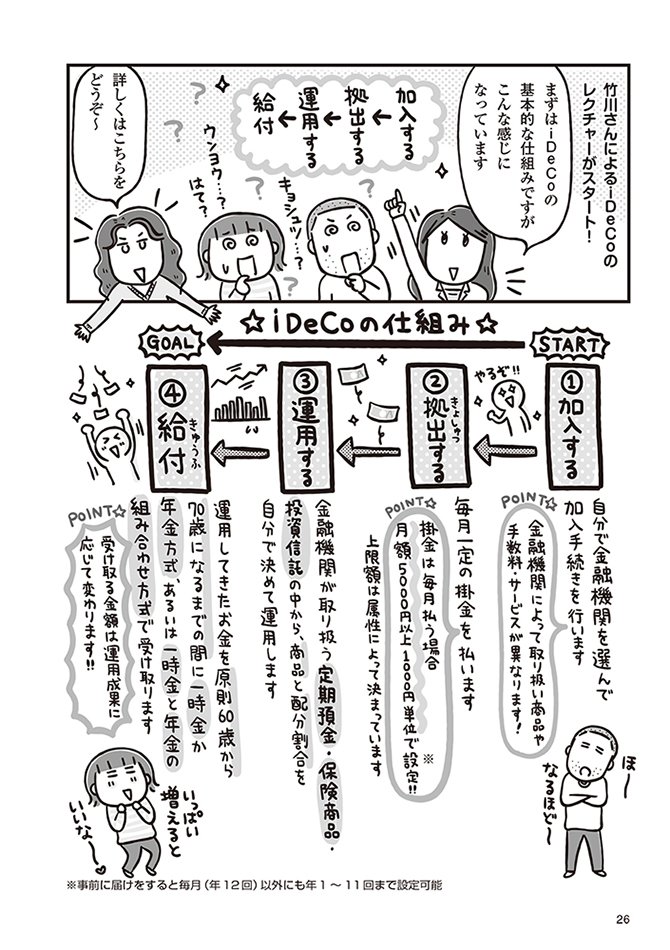 竹川さんによるiDeCoの
レクチャーがスタート!
まずはiDeCoの
基本的な仕組みですが
こんな感じに
なっています
加入する
拠出する
運用する
給付
キョシュツ…?
ウンヨウ…?
はて?
詳しくはこちらを
どうぞ〜
☆iDeCoの仕組み☆
START
GOAL
①加入する
やるぞ!!
②拠出する
きょしゅつ
③運用する
④給付
きゅうふ
自分で金融機関を選んで
加入手続きを行います
POINT☆
金融機関によって取り扱い商品や
手数料・サービスが異なります!
毎月一定の掛金を払います
POINT☆
掛金は毎月払う場合
月額5000円以上1000円単位で設定!!
※
上限額は属性によって決まっています
金融機関が取り扱う定期預金・保険商品・
投資信託の中から、商品と配分割合を
自分で決めて運用します
運用してきたお金を原則60歳から
70歳になるまでの間に一時金か
年金方式、あるいは一時金と年金の
組み合わせ方式で受け取ります
POINT☆
受け取る金額は運用成果に
応じて変わります!!
ほ〜
なるほど〜
いっぱい
増えると
いいな〜
※事前に届けをすると毎月(年12回)以外にも年1〜11回まで設定可能
26